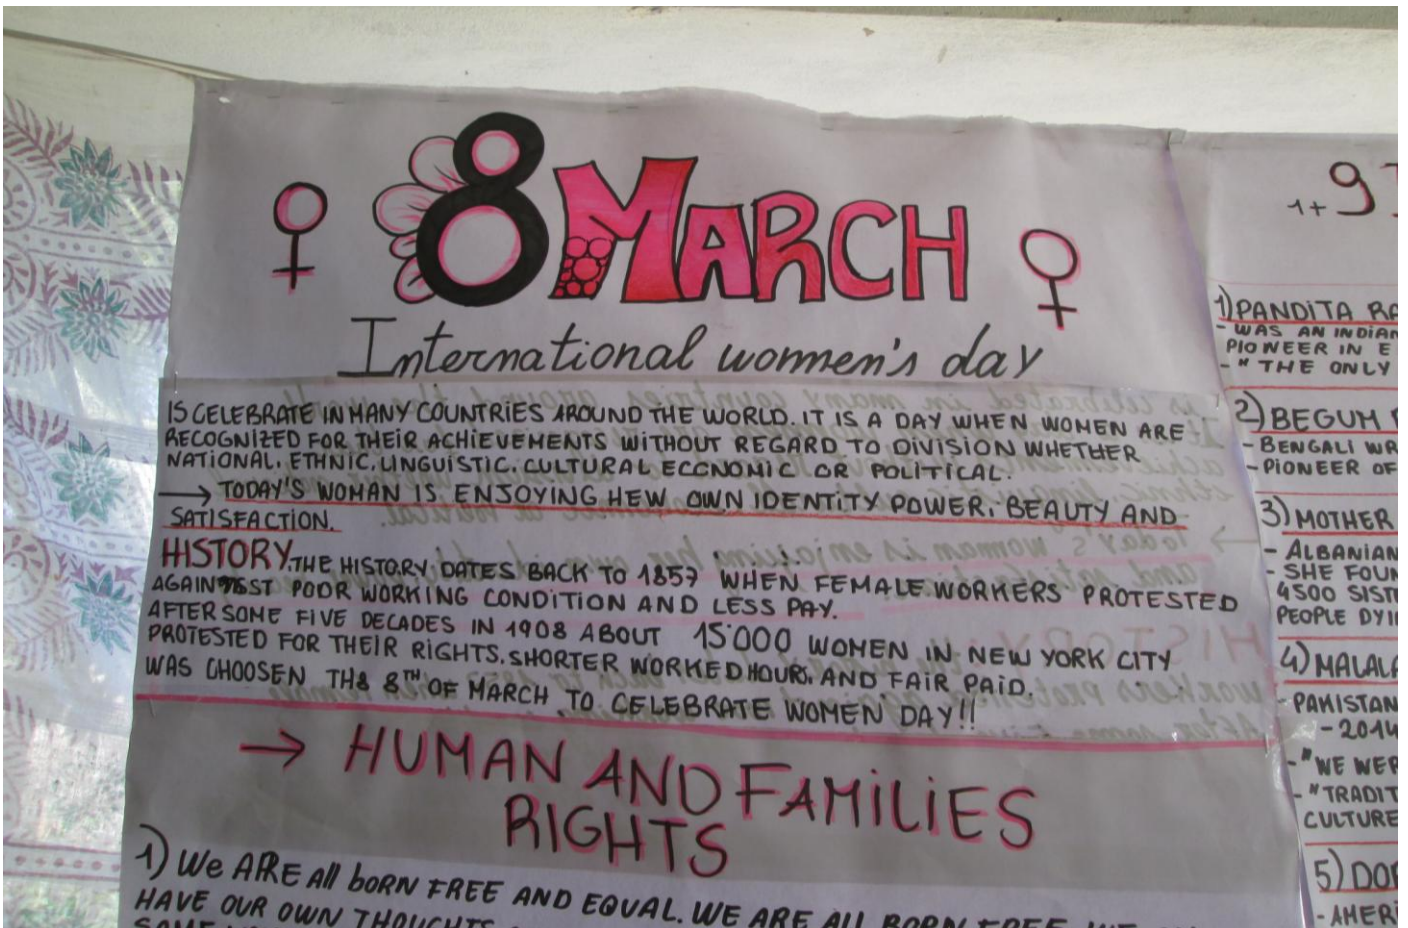 8 MARCH
International women's day
IS CELEBRATE IN MANY COUNTRIES AROUND THE WORLD. IT IS A DAY WHEN WOMEN ARE
RECOGNIZED FOR THEIR ACHIEVEMENTS WITHOUT REGARD TO DIVISION WHETHER
NATIONAL, ETHNIC, LINGUISTIC, CULTURAL ECONOMIC OR POLITICAL.
→ TODAY'S WOMAN IS ENJOYING HEW OWN IDENTITY POWER, BEAUTY AND
SATISFACTION.
HISTORY. THE HISTORY DATES BACK TO 1857 WHEN FEMALE WORKERS PROTESTED
POOR WORKING CONDITION AND LESS PAY.
AFTER SOME FIVE DECADES IN 1908 ABOUT 15'000 WOMEN IN NEW YORK CITY
PROTESTED FOR THEIR RIGHTS. SHORTER WORKED HOUR, AND FAIR PAID.
WAS CHOOSEN TH8 8TH OF MARCH TO CELEBRATE WOMEN DAY!!
→ HUMAN AND FAMILIES
RIGHTS
1) We ARE All bORN FREE AND EQUAL. WE ARE ALL BORN FREE. WE
HAVE OUR OWN THOUGHTS
1+ 9
1) PANDITA RA
- WAS AN INDIAN
PIONEER IN E
- " THE ONLY
2) BEGUM
- BENGALI WR
- PIONEER OF
3) MOTHER
- ALBANIAN
- SHE FOUN
4500 SIST
PEOPLE DYI
4) MALALA
- PAKISTAN
- 2014
- "WE WER
- "TRADIT
CULTURE
5) DO
- AMERI